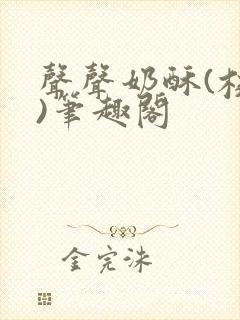 聲聲奶酥(校
)筆趣閣
金完洙